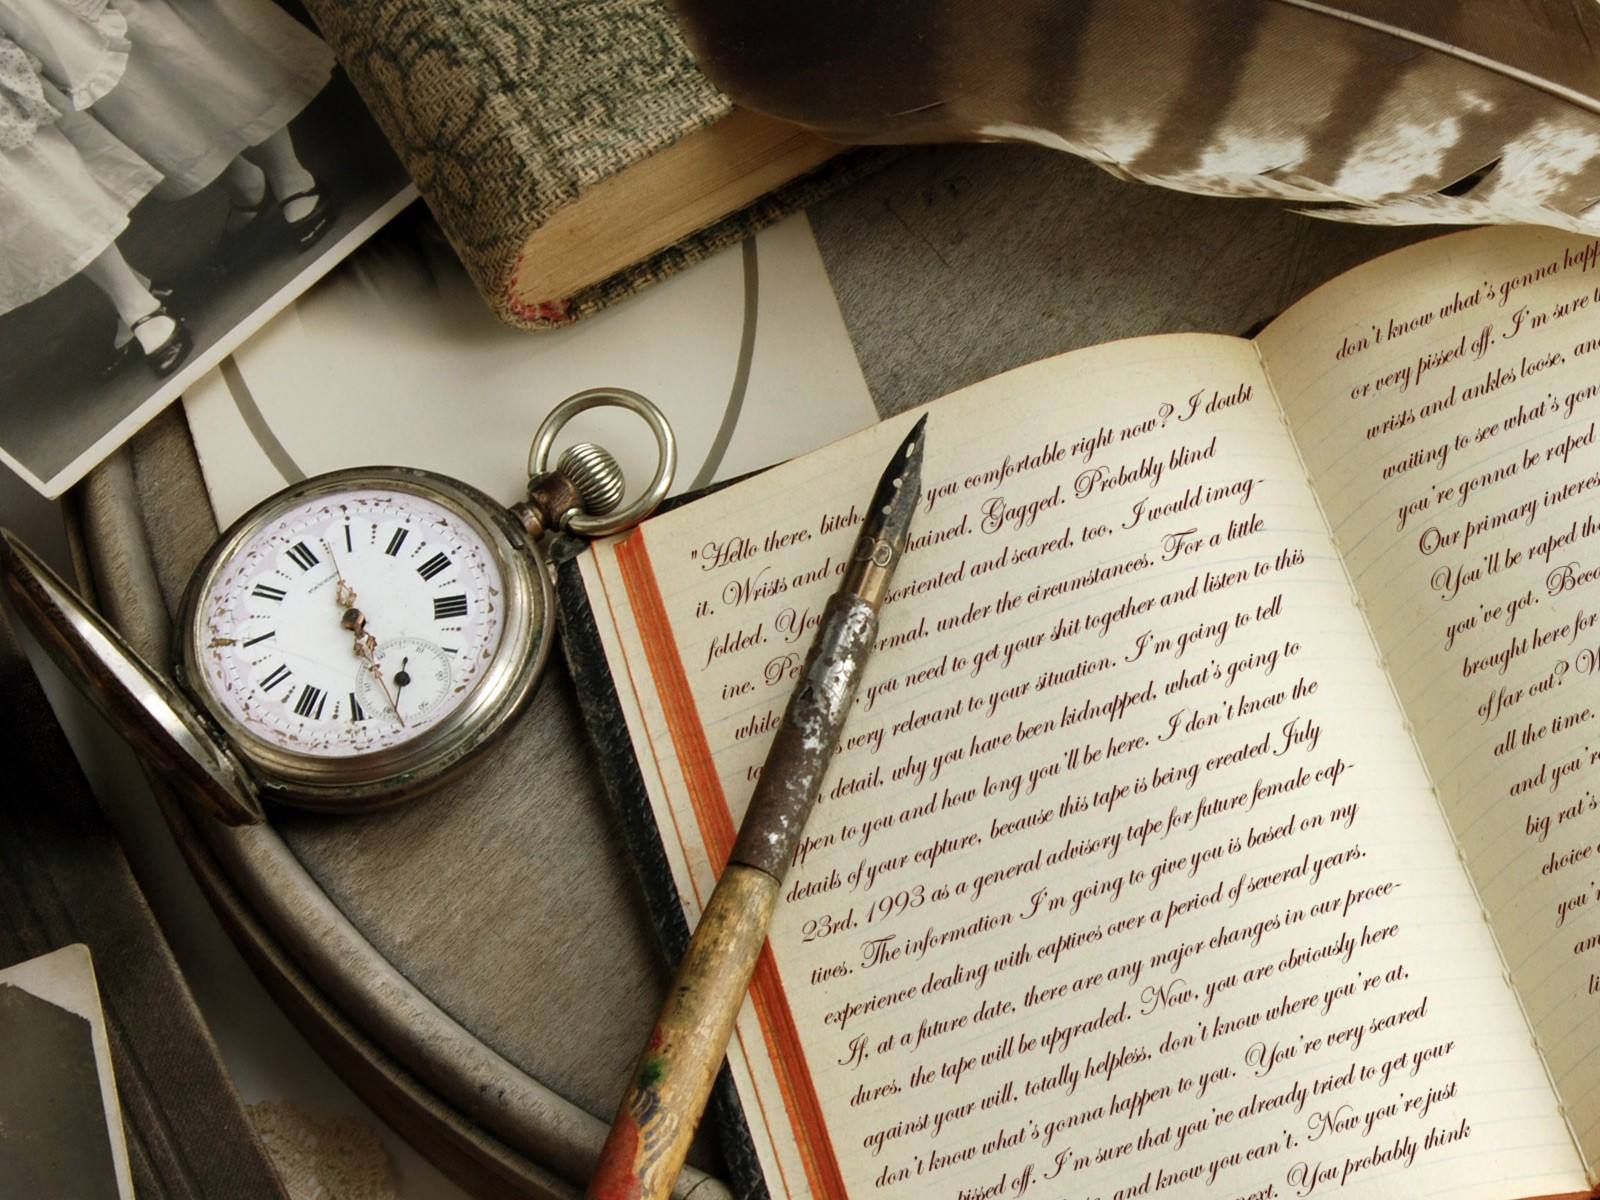 "Hello there, bitch. you comfortable right now? I doubt
it. Wrists and a hained. Gagged. Probably blind
folded. You soriented and scared, too, I would imag-
ine. Per rmal, under the circumstances. For a little
while, you need to get your shit together and listen to this
s very relevant to your situation. I'm going to tell
detail, why you have been kidnapped, what's going to
ppen to you and how long you'll be here. I don't know the
details of your capture, because this tape is being created July
23rd, 1993 as a general advisory tape for future female cap-
tives. The information I'm going to give you is based on my
experience dealing with captives over a period of several years.
If, at a future date, there are any major changes in our proce-
dures, the tape will be upgraded. Now, you are obviously here
against your will, totally helpless, don't know where you're at,
don't know what's gonna happen to you. You're very scared
pissed off. I'm sure that you've already tried to get your
and know you can't. Now you're just
next. You probably think
don't know what's gonna happ
or very pissed off. I'm sure t
wrists and ankles loose, an
waiting to see what's gon
you're gonna be raped
Our primary interes
You'll be raped tho
you've got. Beca
brought here for
of far out? W
all the time.
and you're
big rat's
choice
you'r
am
li